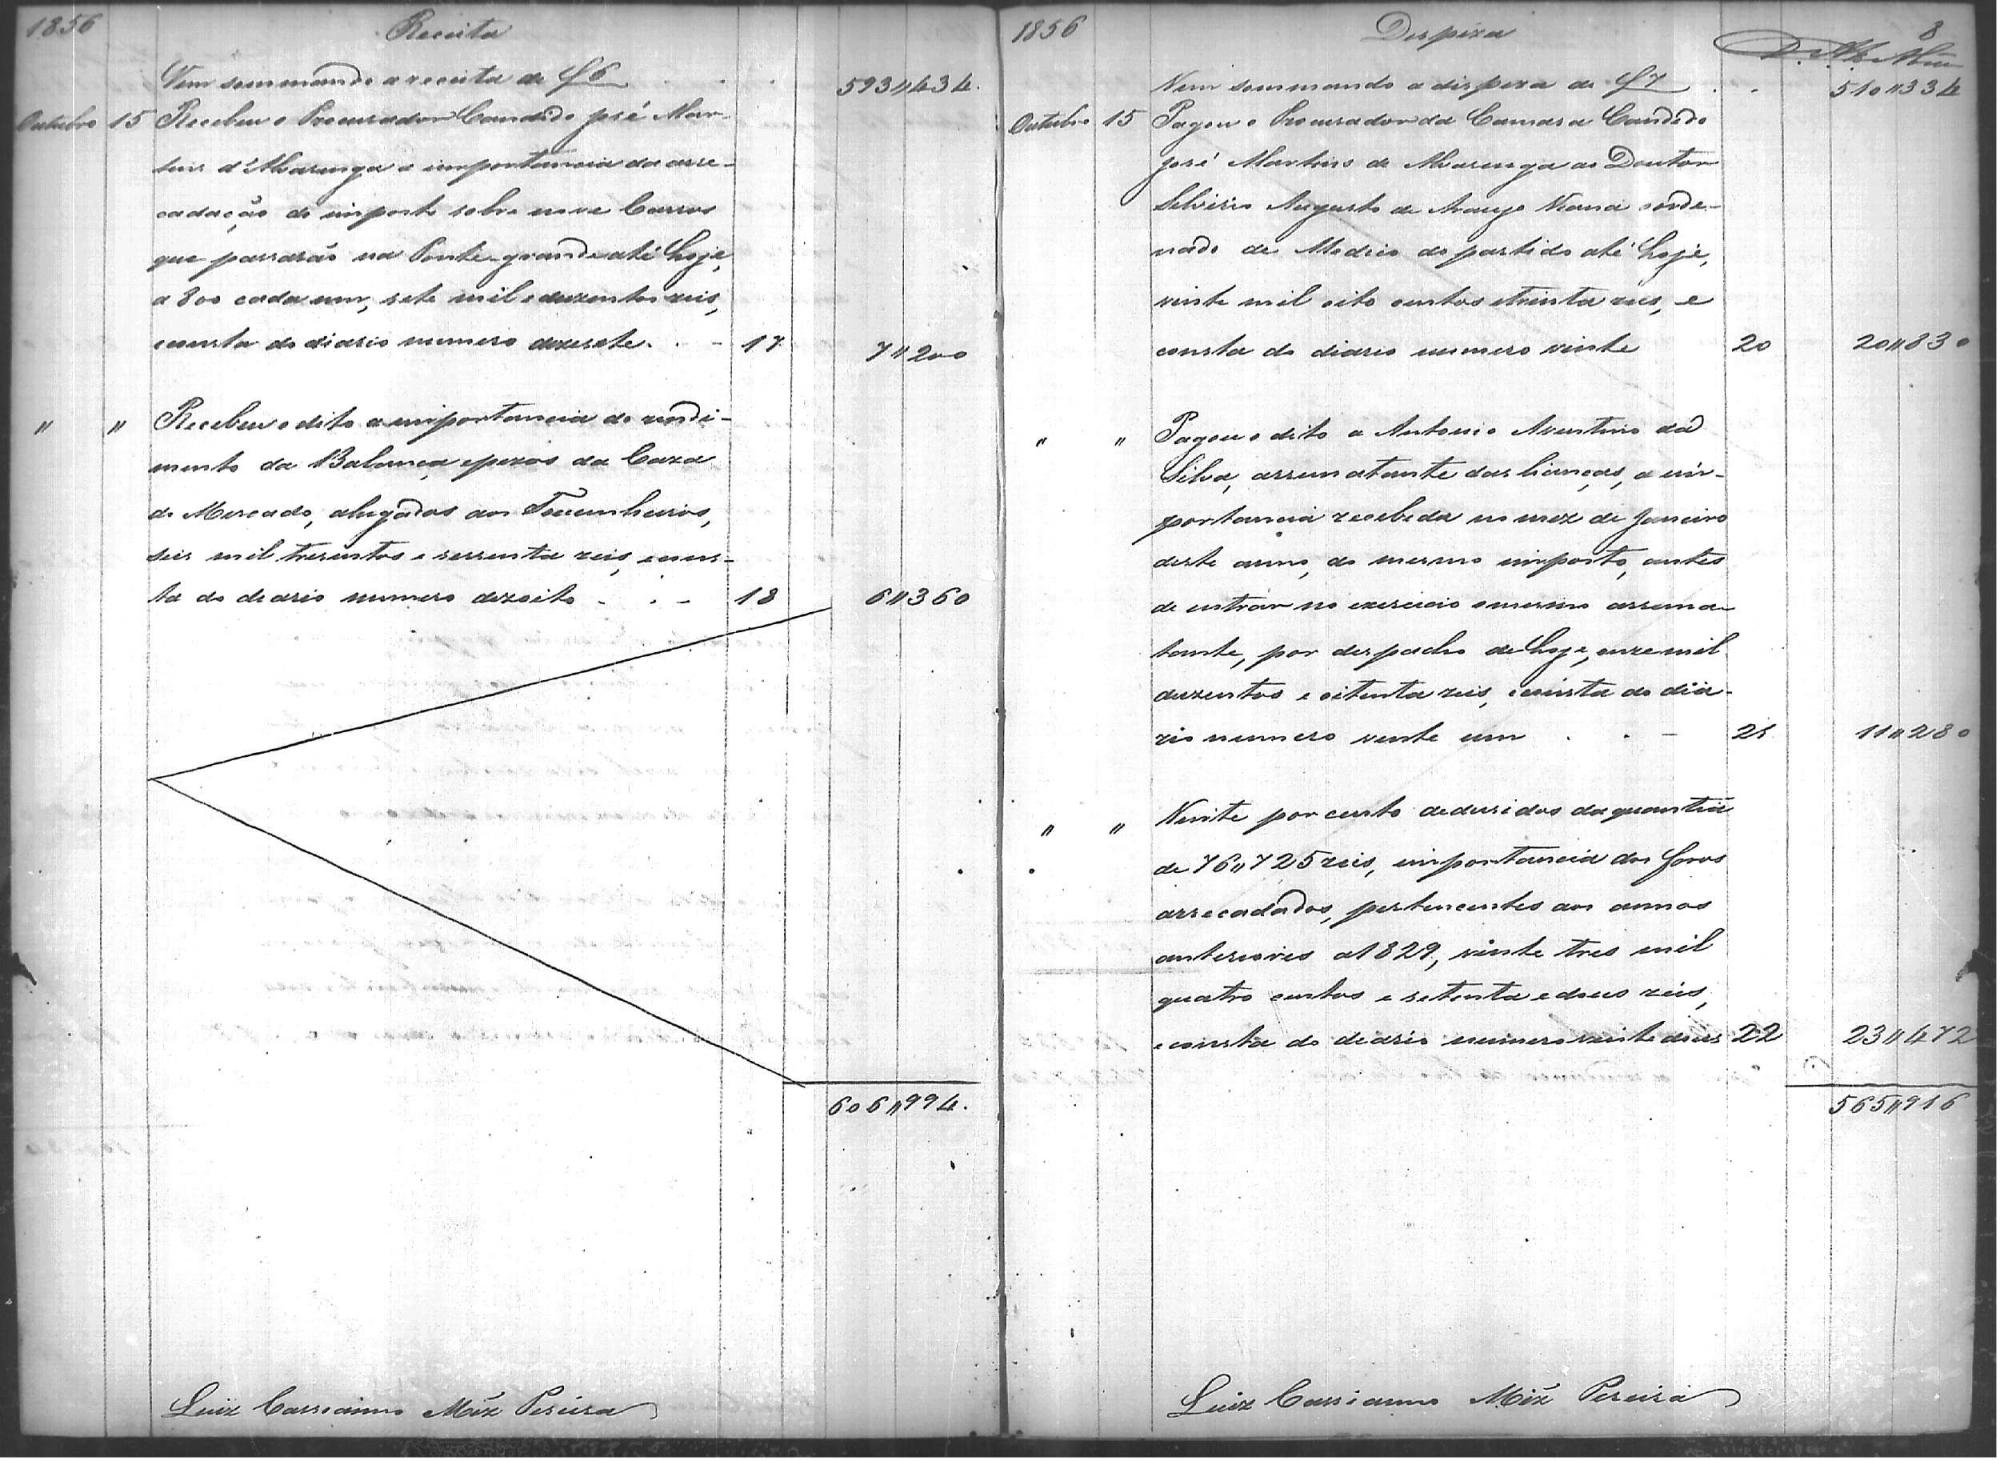 1856 Receita
Vem sommando a receita de f 6 593"434.
Outubro 15 Recebeu o Procurador Candido José Mar-
tins d'Alvarenga a importancia da arre-
cadação do imposto sobre nove Carros
que passarão na Ponte-grande até hoje,
a 800 cada um, sete mil e duzentos reis,
econsta do diario numero dezesete. - 17 7"200
" " Recebeu o dito a importancia do rendi-
mento da Balança, epezos da Caza
do Mercado, alugados aos Toucinheiros,
seis mil tresentos e sessenta reis, econs-
ta do diario numero dezoito - . - 18 6"360
606"994.
Luiz Cassianno Miz Pereira
1856 Despeza 8
Vem sommando a dispeza de f 7 510"334
Outubro 15 Pagou o Procurador da Camara Candido
José Martins de Alvarenga ao Doutor
Silverio Augusto de Araujo Vianna o orde-
nado de Medico do partido até hoje,
vinte mil oito centos etrinta reis, e
consta do diario numero vinte 20 20"830
" " Pagou o dito a Antonio Aventino da
Silva, arrematante das licenças, a im-
portancia recebida no mez de Janeiro
deste anno, do mesmo imposto, antes
de entrar no exercicio o mesmo arrema-
tante, por despacho de hoje, onze mil
duzentos e oitenta reis, econsta do dia-
rio numero vente um . . - 21 11"280
" " Vinte por cento deduzidos da quantia
de 76"725 reis, importancia dos foros
arrecadados, pertencentes aos annos
anteriores a 1829, vinte tres mil
quatro centos e setenta e dous reis,
econsta do diario numero vinte dous 22 23"472
565"916
Luiz Cassianno Miz Pereira